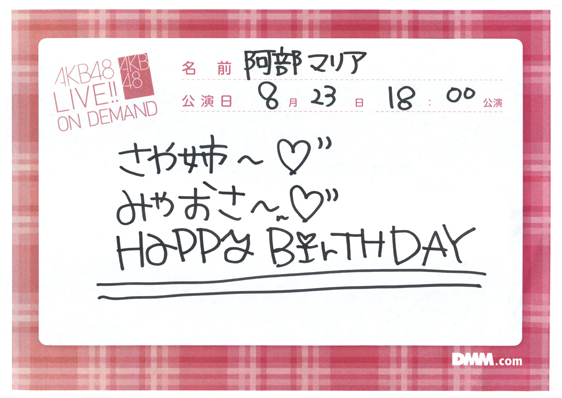 AKB48
LIVE!!
ON DEMAND
AKB
48
名前 阿部マリア
公演日 8月23日 18:00公演
さや姉〜♡”
みゃおさ〜~♡”
HAPPY BIrTHDAY
DMM.com